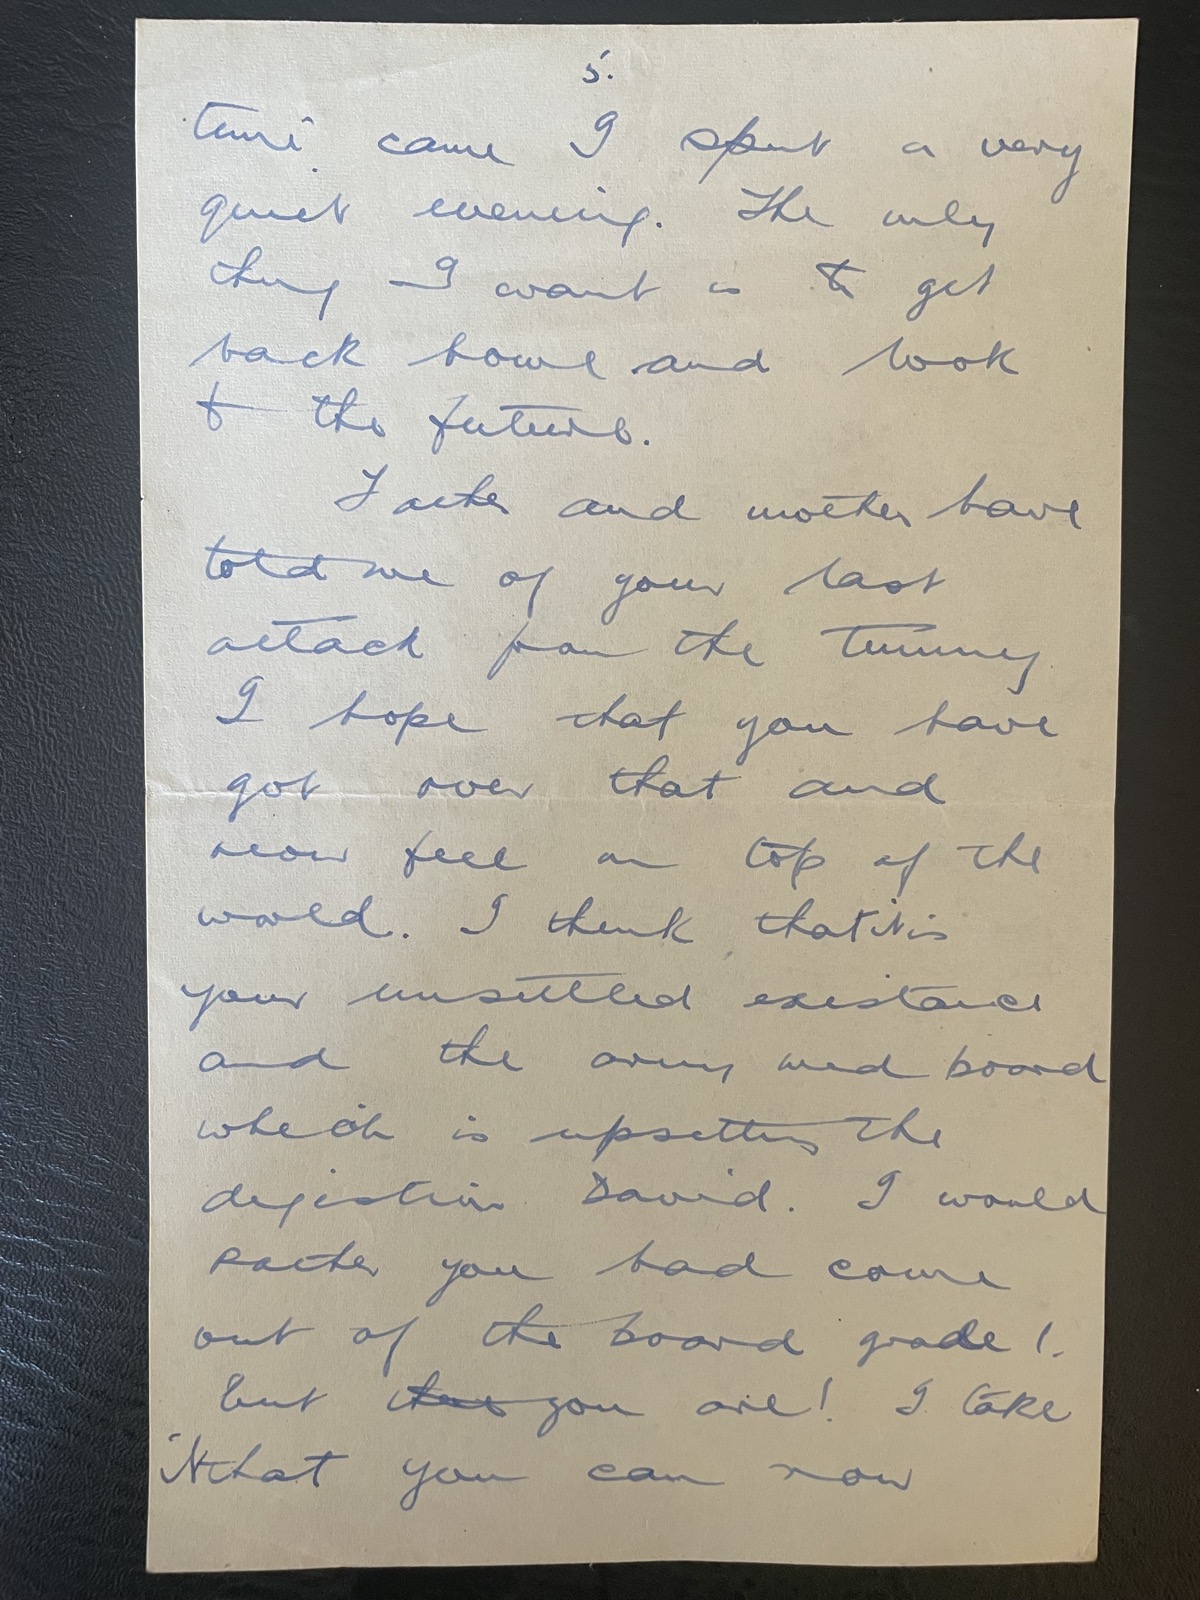 5.
time came I spent a very
quiet evening. The only
thing I want is to get
back home and look
to the future.
Father and mother have
told me of your last
attack from the tummy.
I hope that you have
got over that and
now feel on top of the
world. I think that it is
your unsettled existance
and the army med board
which is upsetting the
digestion David. I would
rather you had come
out of the board grade 1.
but you are! I take
it that you can now